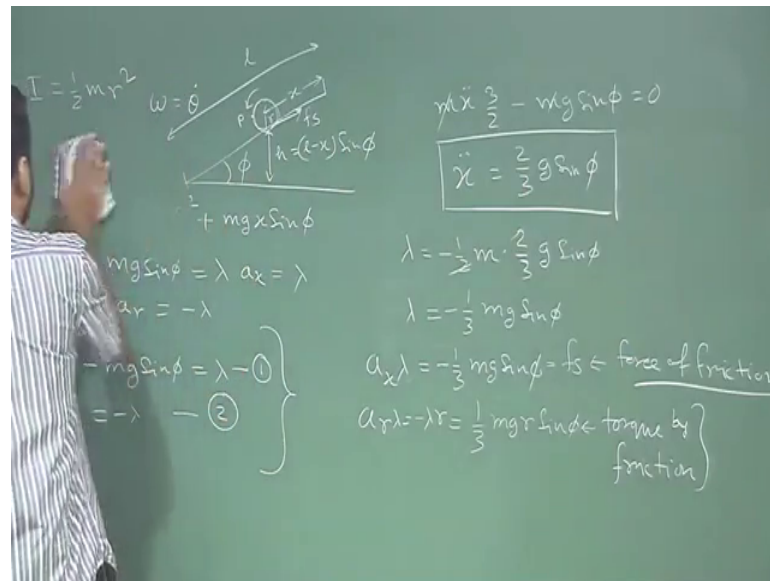 I = 1/2 mr²
ω = θ̇
l
x
P
fs
h = (l-x) Sin φ
φ
2 + mgx Sin φ
mg Sin φ = λ ax = λ
ar = -λ
- mg Sin φ = λ - ①
= -λ - ②
mẍ 3/2 - mg Sin φ = 0
ẍ = 2/3 g Sin φ
λ = -1/2 m · 2/3 g Sin φ
λ = -1/3 mg Sin φ
aₓλ = -1/3 mg Sin φ = fs ← force of friction
aᵣλ = -λr = 1/3 mgr Sin φ ← torque by
friction